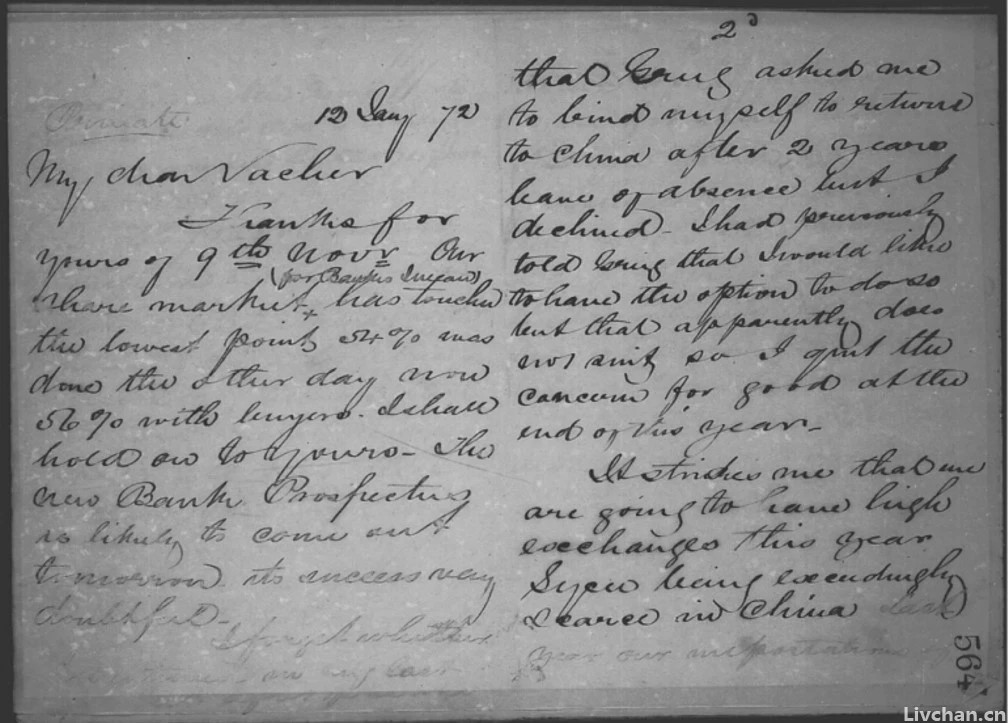 Private
12 Jany 72
My dear Vacher
Thanks for
yours of 9th Novr. Our
(for Banks I mean)
share market + has touched
the lowest point, 54% was
done the other day now
56% with buyers. I shall
hold on to yours - The
new Bank Prospectus
is likely to come out
tomorrow its success very
doubtful -
I forget whether
I mentioned in my last
2d
that asked me
to bind myself to return
to China after 2 years
leave of absence but I
declined - I had previously
told that I would like
to have the option to do so
but that apparently does
not suit, so I quit the
concern for good at the
end of this year -
It strikes me that we
are going to have high
exchanges this year
Sycee being exceedingly
scarce in China last
year our importations of
564
Livchan.cn